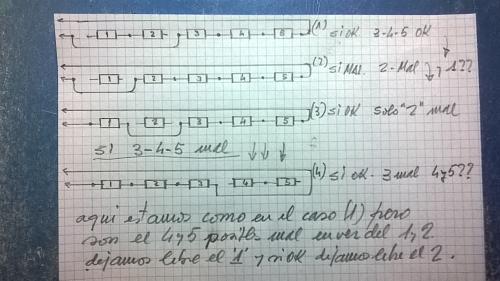 1 2 3 4 6 (1) si OK 3-4-5 OK
1 2 3 4 5 (2) si MAL. 2-Mal y 1??
1 2 3 4 5 (3) si OK solo "2" mal
si 3-4-5 mal
1 2 3 4 5 (4) si OK - 3 mal 4y5??
aqui estamos como en el caso (1) pero
son el 4y5 posible mal en ver del 1y2.
dejamos libre el 1 y si OK dejamos libre el 2.